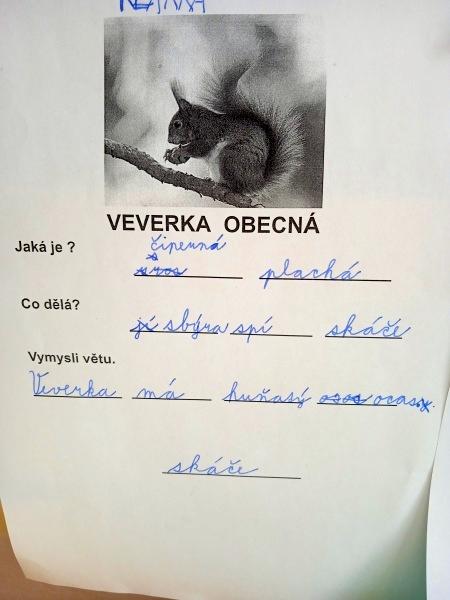 VEVERKA OBECNÁ
Jaká je ?
čiperná
plachá
Co dělá?
jí sbýra spí skáče
Vymysli větu.
Veverka má huňatý ocas.
skáče